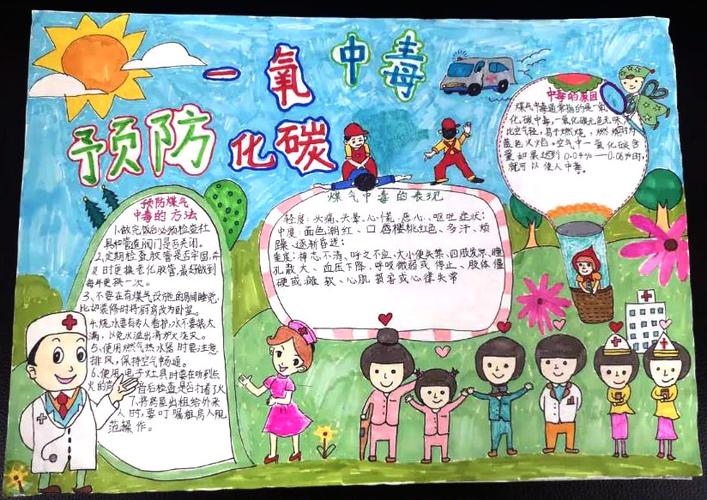 预防
一氧
化碳
中毒
预防煤气
中毒的方法
1.做完饭的必须检查灶
具和管道阀门是否关闭。
2.定期检查胶管是否牢固,
时更换老化胶管,最好做到
每年更换一次。
3、不要在有煤气设施的房间睡觉,
比如装修时将厨房改为卧室。
4、烧水要有专人看护,水不要装太
满,以免水溢出浇灭火。
5、使用燃气热水器时要注意
排风,保持空气畅通。
6、使用电子灶具时要在听到点
火的声音后检查是否打着火
7、将房屋出租给外来
人时,要叮嘱租房人规
范操作。
煤气中毒的表现
轻度:头痛、头晕、心慌、恶心、呕吐症状;
中度:面色潮红、口唇樱桃红色、多汗、烦
躁、逐渐昏迷;
重度:神志不清、呼之不应、大小便失禁、四肢发凉、瞳
孔散大、血压下降、呼吸微弱或停止、肢体僵
硬或瘫软、心肌损害或心律失常
中毒的原因
煤气中毒通常指的是一氧
化碳中毒,一氧化碳无色无味,
比空气轻,易于燃烧,燃烧时为
蓝色火焰。空气中一氧化碳含
量如果达到0.04%—0.06%时,
就可以使人中毒。